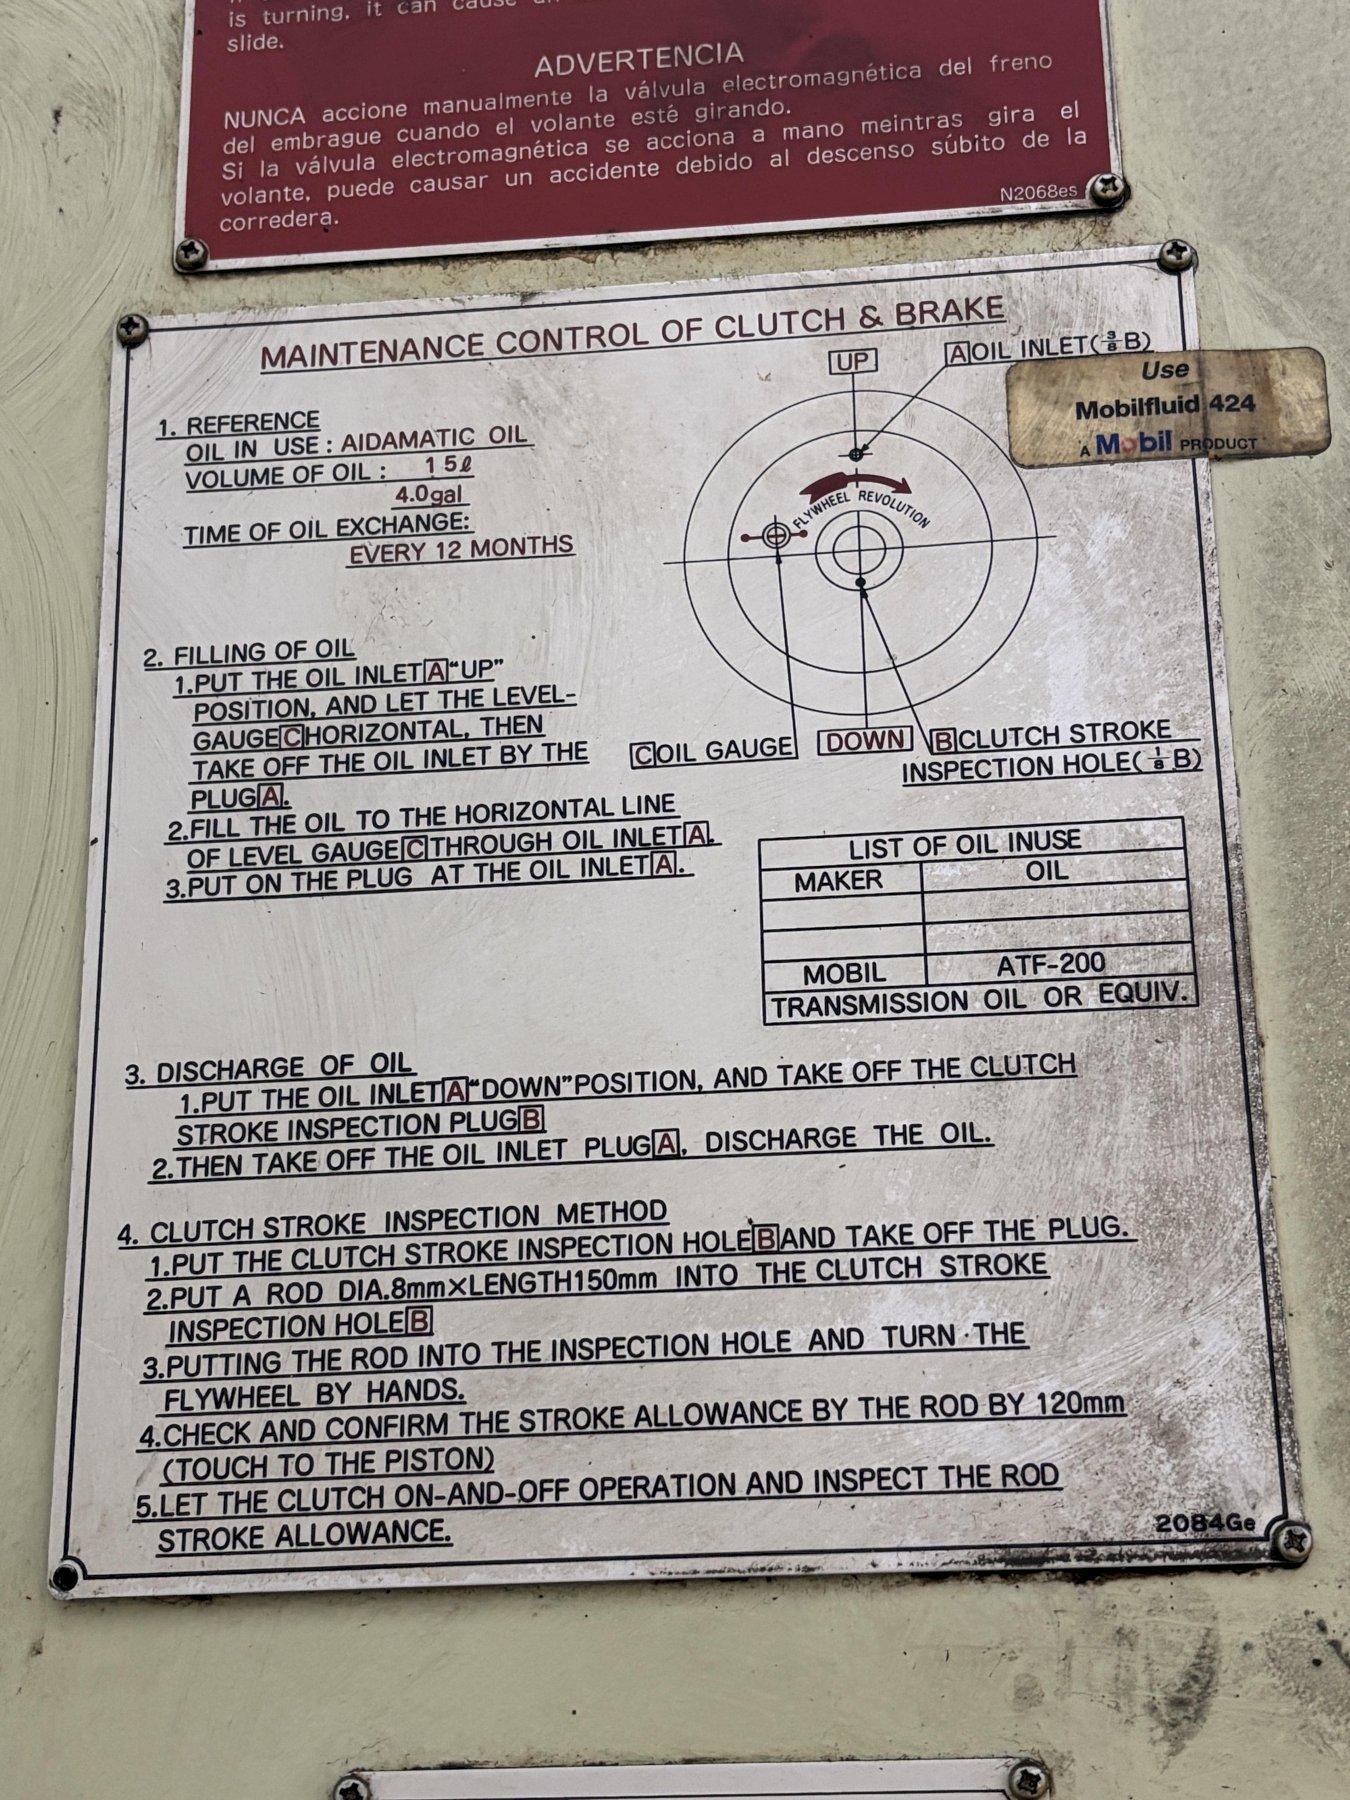 is turning, it can cause an
slide.
ADVERTENCIA
NUNCA accione manualmente la válvula electromagnética del freno
del embrague cuando el volante esté girando.
Si la válvula electromagnética se acciona a mano meintras gira el
volante, puede causar un accidente debido al descenso súbito de la
corredera.
N2068es
MAINTENANCE CONTROL OF CLUTCH & BRAKE
UP
A OIL INLET(3/8 B)
Use
Mobilfluid 424
A Mobil PRODUCT
1. REFERENCE
OIL IN USE : AIDAMATIC OIL
VOLUME OF OIL : 15ℓ
4.0gal
TIME OF OIL EXCHANGE:
EVERY 12 MONTHS
FLYWHEEL REVOLUTION
C OIL GAUGE
DOWN
B CLUTCH STROKE
INSPECTION HOLE(1/8 B)
2. FILLING OF OIL
1.PUT THE OIL INLET A “UP”
POSITION, AND LET THE LEVEL-
GAUGE C HORIZONTAL, THEN
TAKE OFF THE OIL INLET BY THE
PLUG A.
2.FILL THE OIL TO THE HORIZONTAL LINE
OF LEVEL GAUGE C THROUGH OIL INLET A.
3.PUT ON THE PLUG AT THE OIL INLET A.
LIST OF OIL INUSE
MAKER OIL
MOBIL ATF-200
TRANSMISSION OIL OR EQUIV.
3. DISCHARGE OF OIL
1.PUT THE OIL INLET A “DOWN” POSITION, AND TAKE OFF THE CLUTCH
STROKE INSPECTION PLUG B
2.THEN TAKE OFF THE OIL INLET PLUG A, DISCHARGE THE OIL.
4. CLUTCH STROKE INSPECTION METHOD
1.PUT THE CLUTCH STROKE INSPECTION HOLE B AND TAKE OFF THE PLUG.
2.PUT A ROD DIA.8mm×LENGTH150mm INTO THE CLUTCH STROKE
INSPECTION HOLE B
3.PUTTING THE ROD INTO THE INSPECTION HOLE AND TURN THE
FLYWHEEL BY HANDS.
4.CHECK AND CONFIRM THE STROKE ALLOWANCE BY THE ROD BY 120mm
(TOUCH TO THE PISTON)
5.LET THE CLUTCH ON-AND-OFF OPERATION AND INSPECT THE ROD
STROKE ALLOWANCE.
2084Ge